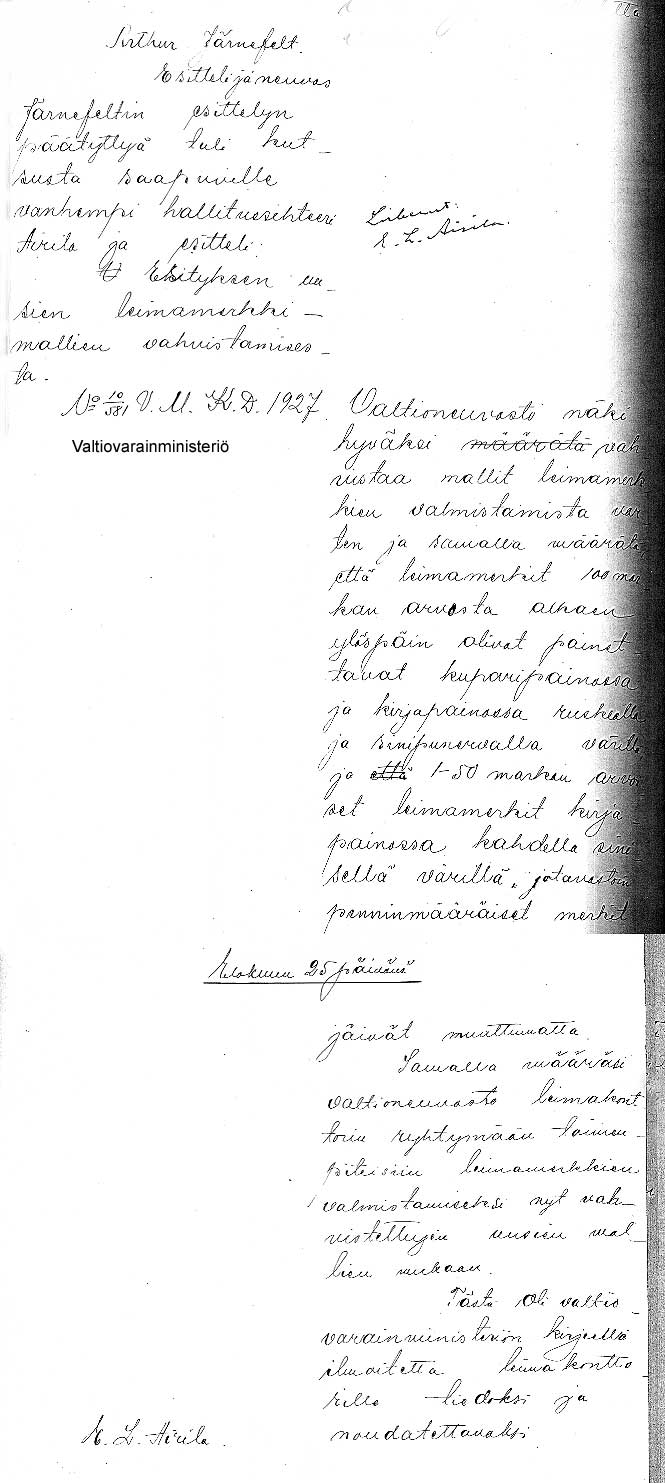 Arthur Järnefelt.
Esittelijäneuvos
Järnefeltin esittelyn
päätyttyä tuli kut-
susta saapuville
vanhempi hallitussihteeri
Airila ja esitteli:
Esityksen uu-
sien leimamerkki-
mallien vahvistamises-
ta.
E. L. Airila.
No 10/581 V.M. K.D. 1927.
Valtiovarainministeriö
Valtioneuvosto näki
hyväksi määrätä vah
vistaa mallit leimamerk
kien valmistamista var
ten ja samalla määrätä
että leimamerkit 100 mar
kan arvosta alkaen
ylöspäin olivat painet-
tavat kuparipainossa
ja kirjapainossa ruskealla
ja sinipunervalla värillä
ja että 1-50 markan arvoi
set leimamerkit kirja
painossa kahdella sini
sellä värillä, jotavastoin
penninmääräiset merkit
Elokuun 25 päivänä
jäivät muuttumatta.
Samalla määräsi
valtioneuvosto leimakont
torin ryhtymään toimen-
piteisiin leimamerkkien
valmistamiseksi nyt vah-
vistettujen uusien mal-
lien mukaan.
Tästä oli valtio-
varainministeriön kirjeellä
ilmoitettava leimakontto-
rille tiedoksi ja
noudatettavaksi
E. L. Airila.